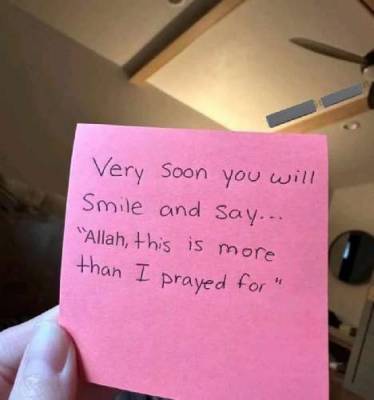 Very soon you will
Smile and say...
"Allah, this is more
than I prayed for"